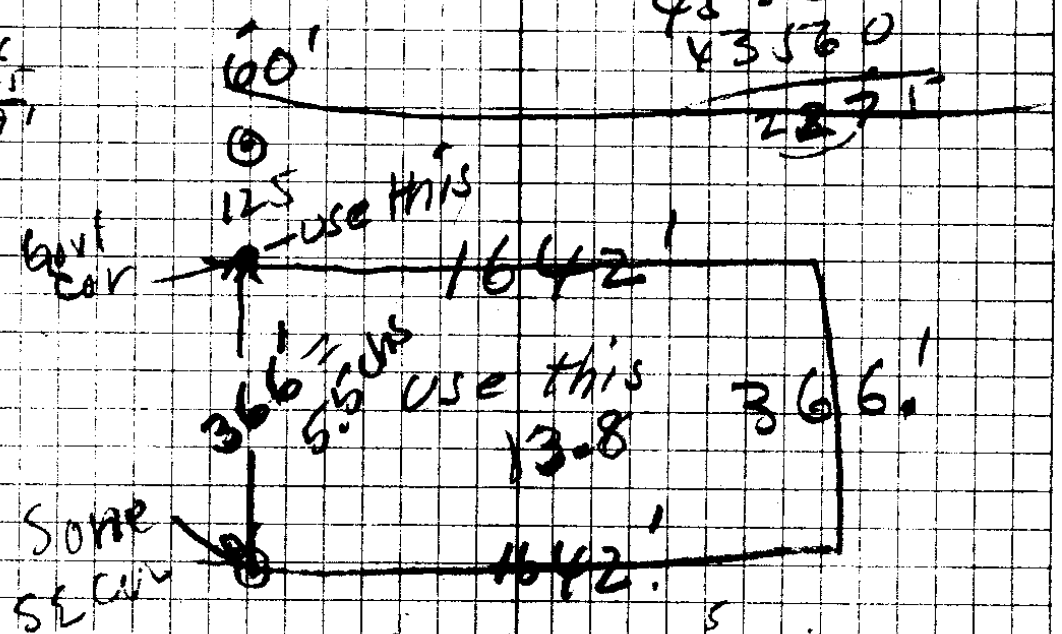 60'
43560
125
use this
Gov't
cor
1642'
366'
5.5 chs
use this
366.'
13.8
Stone
SE cor
1642.'
5